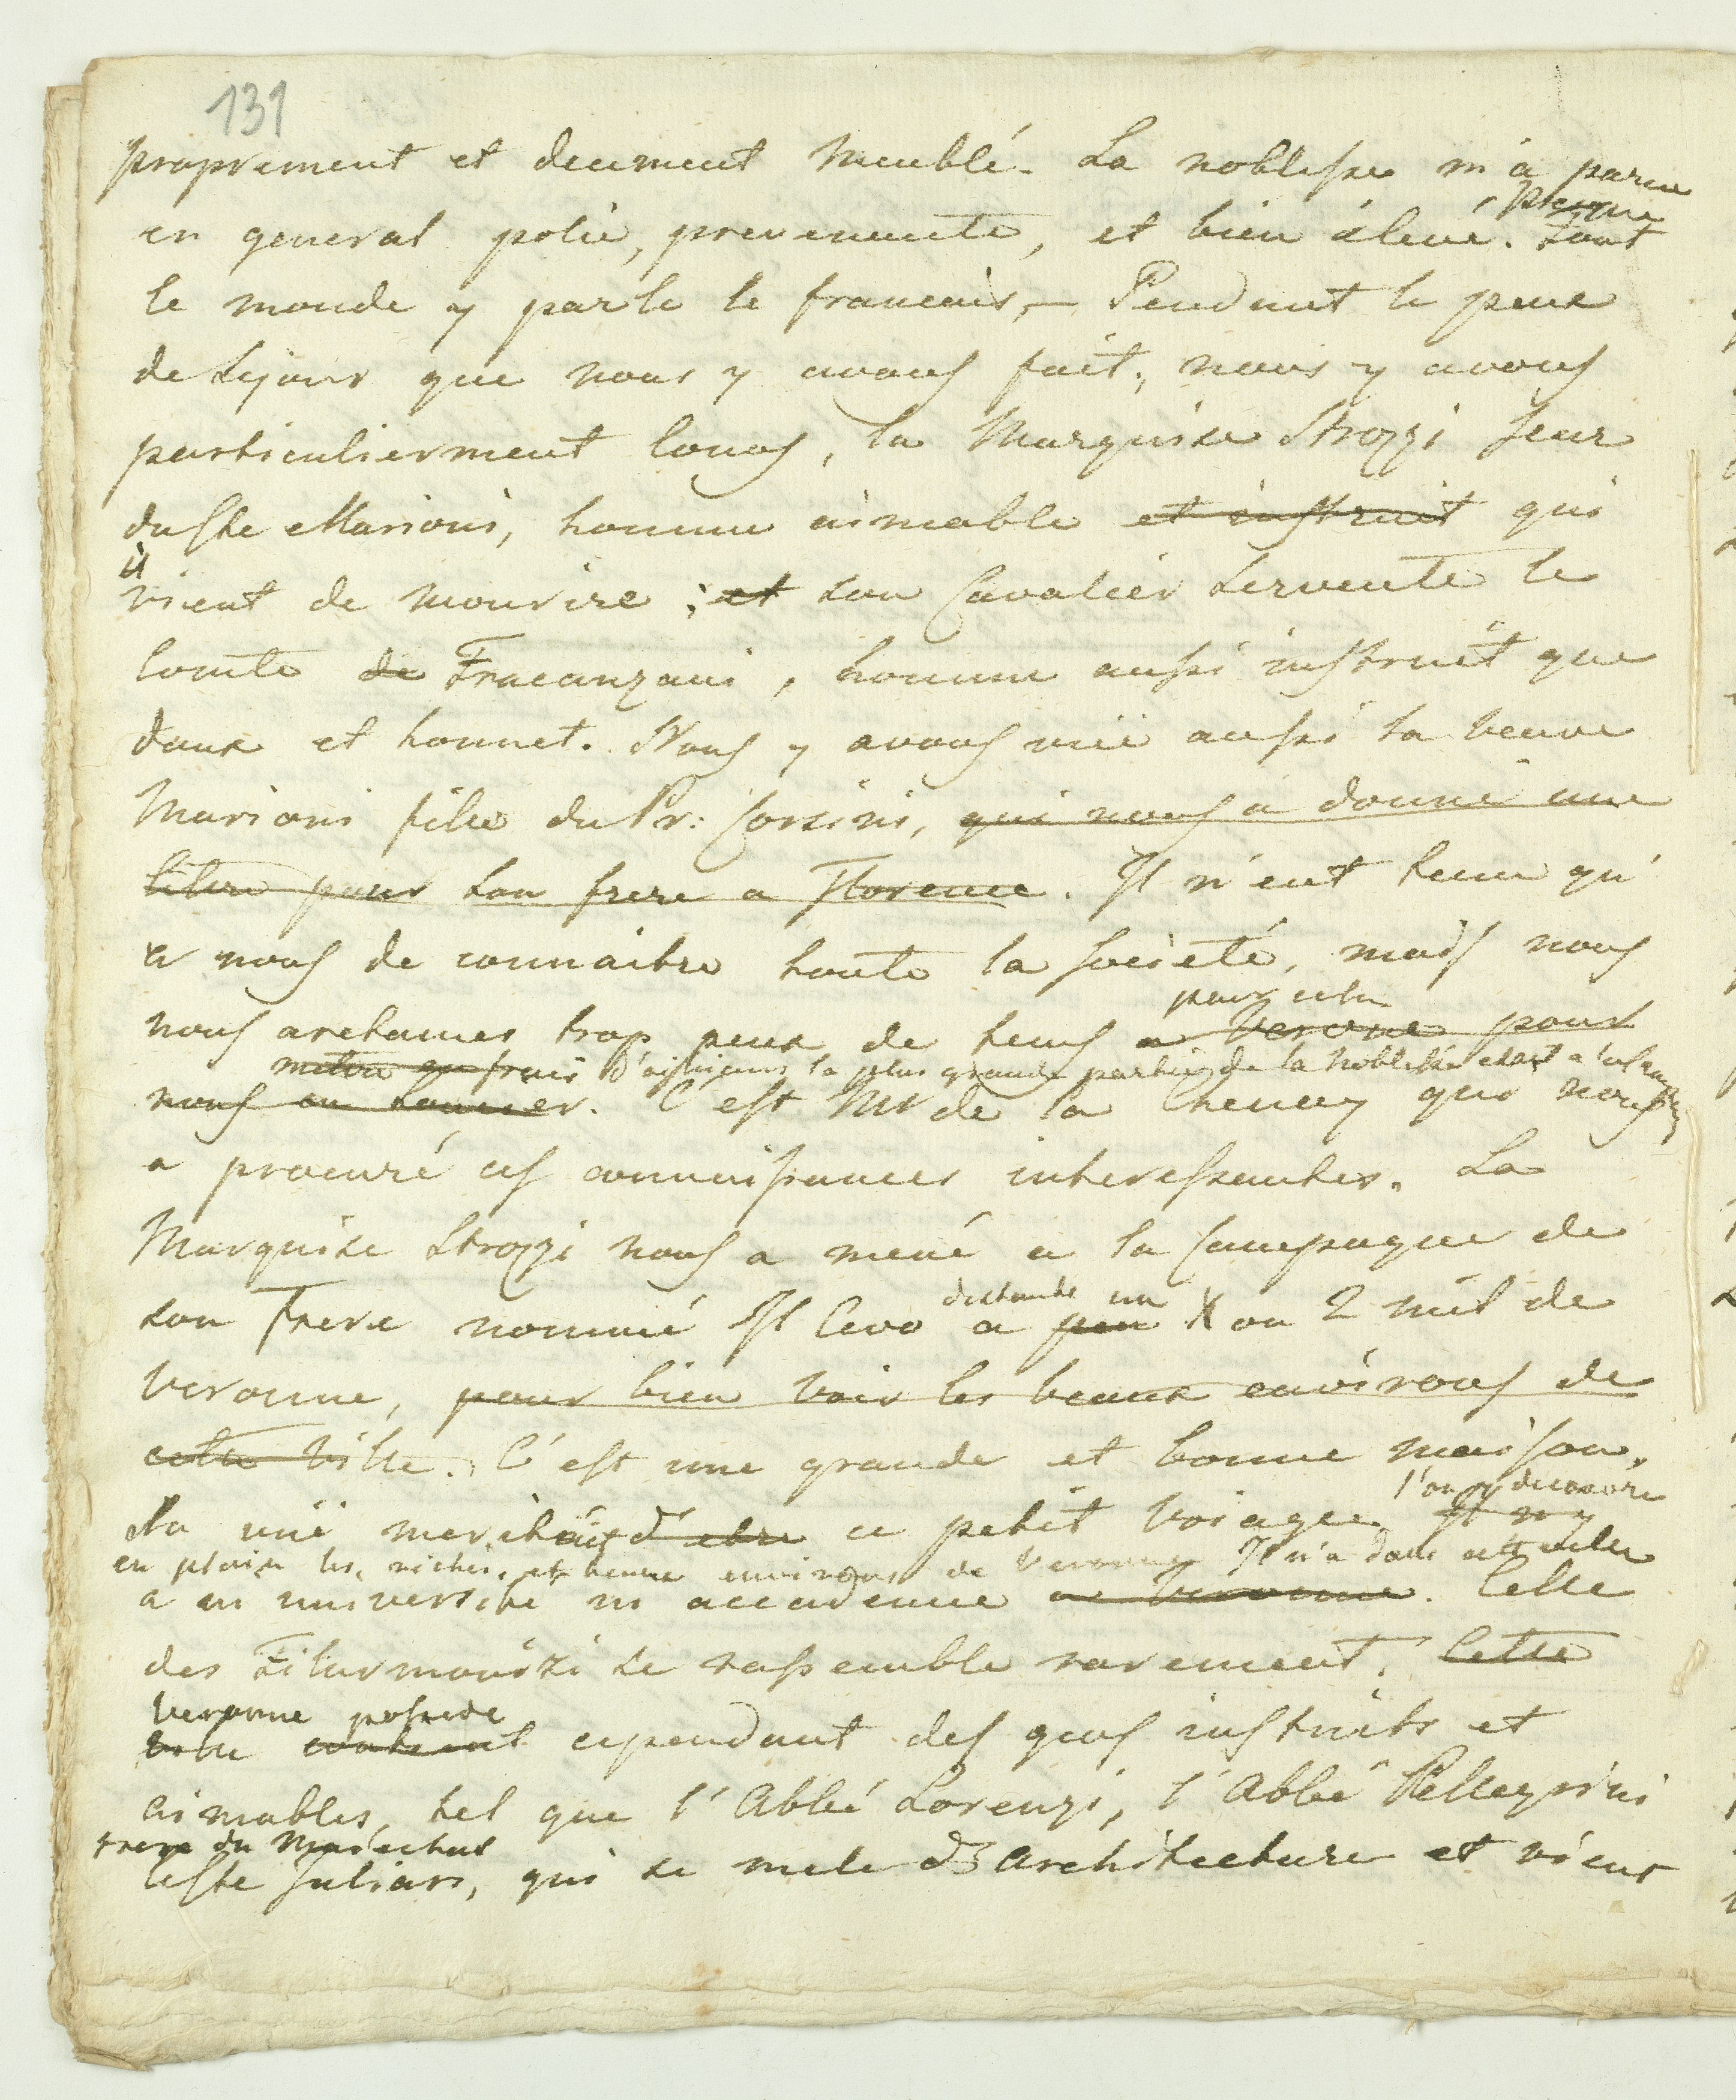 131
proprement et decment meublé. La noblesse m'a parue
presque
en general polie, prevenente, et bien élevé. tout
le monde y parle le francais, – Pendent le peux
de sejour que nous y avons fait, nous y avons
particulierment conus, la Marquise Strozzi seur
du Cte Marioni, homme aimable et instruit qui
il
vient de mourire ; et son Cavalier Servente le
Comte de Fracanzani, homme aussi instruit que
doux et honnet. Nous y avons vüe aussi la veuve
Marioni fille du Pr: Corsini, qui nous a donné une
lettre pour son frere a Florence. Il n'eut tenu qu'
a nous de connaitre toute la societé, mais nous
pour cela
nous aretames trop peux de tems a Verone pour
metre en frais D'ailieurs la plus grande partie de la noblesse etait a la Campagne
nous en donner. C'est Mr de la Chenay qui nous
a procuré ces connaissances interessantes. La
Marquise Strozzi nous a mené a la Campagne de
distante un
son Frere nommé Il Cevo a peu X ou 2 mil de
Veronne, pour bien voir les beaux environs de
cette Ville. C'est une grande et bonne maison,
l'on y decouvre
la vüe meritait d'etre ce petit Voiage. Il n'y
en plain les riches, et beaux environs de Veronne Il n'a dans cette ville
a ni université ni accademie a Veronne. Celle
des Filarmonizi se rassemble rarement. Cette
Veronne possede
ville contient cependant des gens instruits et
aimables, tel que l'Abbé Lorenzi, l'Abbé Pellegrini
frere du Maréchal
le Cte Juliari, qui se mele d'Architecture et vient